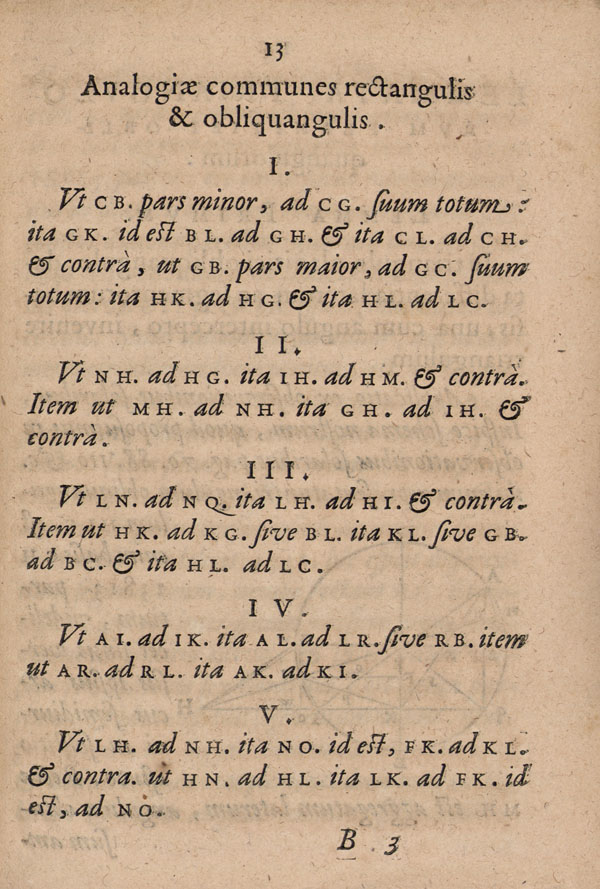 13
Analogiæ communes rectangulis
& obliquangulis.
I.
Vt CB. pars minor, ad CG. suum totum:
ita GK. id est BL. ad GH. & ita CL. ad CH.
& contrà, ut GB. pars maior, ad GC. suum
totum: ita HK. ad HG. & ita HL. ad LC.
II.
Vt NH. ad HG. ita IH. ad HM. & contrà.
Item ut MH. ad NH. ita GH. ad IH. &
contrà.
III.
Vt LN. ad NQ. ita LH. ad HI. & contrà.
Item ut HK. ad KG. sive BL. ita KL. sive GB.
ad BC. & ita HL. ad LC.
IV.
Vt AI. ad IK. ita AL. ad LR. sive RB. item
ut AR. ad RL. ita AK. ad KI.
V.
Vt LH. ad NH. ita NO. id est, FK. ad KL.
& contra. ut HN. ad HL. ita LK. ad FK. id
est, ad NO.
B 3